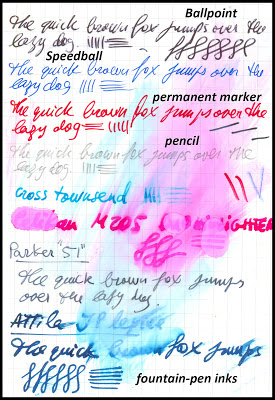 Ballpoint
the quick brown fox jumps over the
lazy dog.
Speedball
the quick brown fox jumps over the
lazy dog
permanent marker
the quick brown fox jumps over the
lazy dog
pencil
the quick brown fox jumps over the
lazy dog
cross townsend
Pelikan M205 HIGHLIGHTER
Parker "51"
the quick brown fox jumps
over the lazy dog.
Attila
the quick brown fox jumps
fountain-pen inks